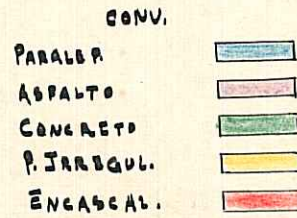 CONV.
PARALEP.
ASFALTO
CONCRETO
P. IRREGUL.
ENCASCAL.